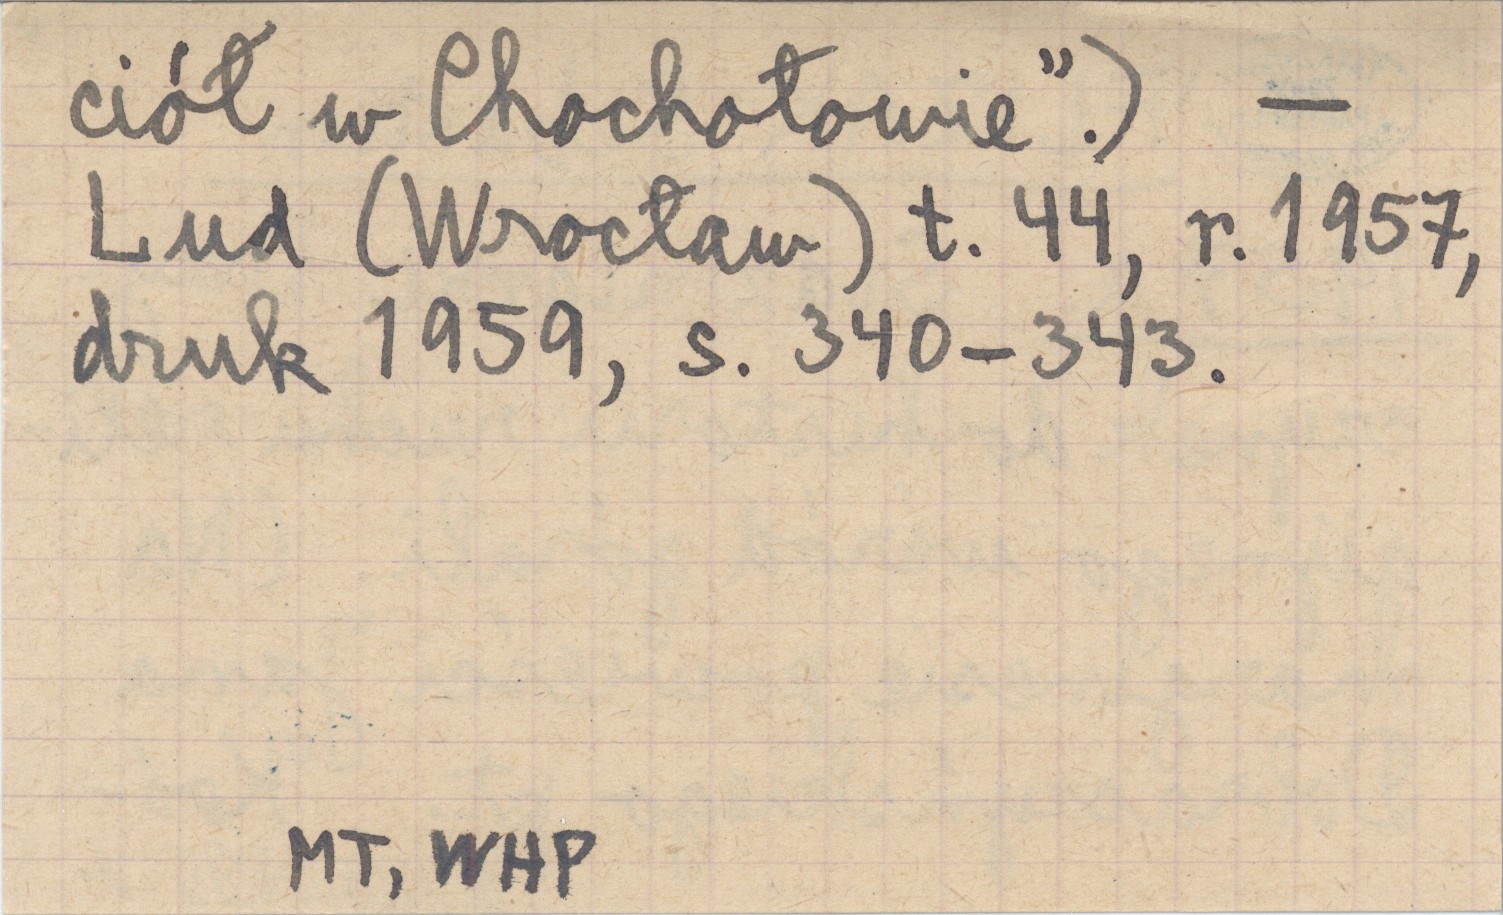 ciół w Chochołowie”.) —
Lud (Wrocław) t. 44, r. 1957,
druk 1959, s. 340–343.
MT, WHP